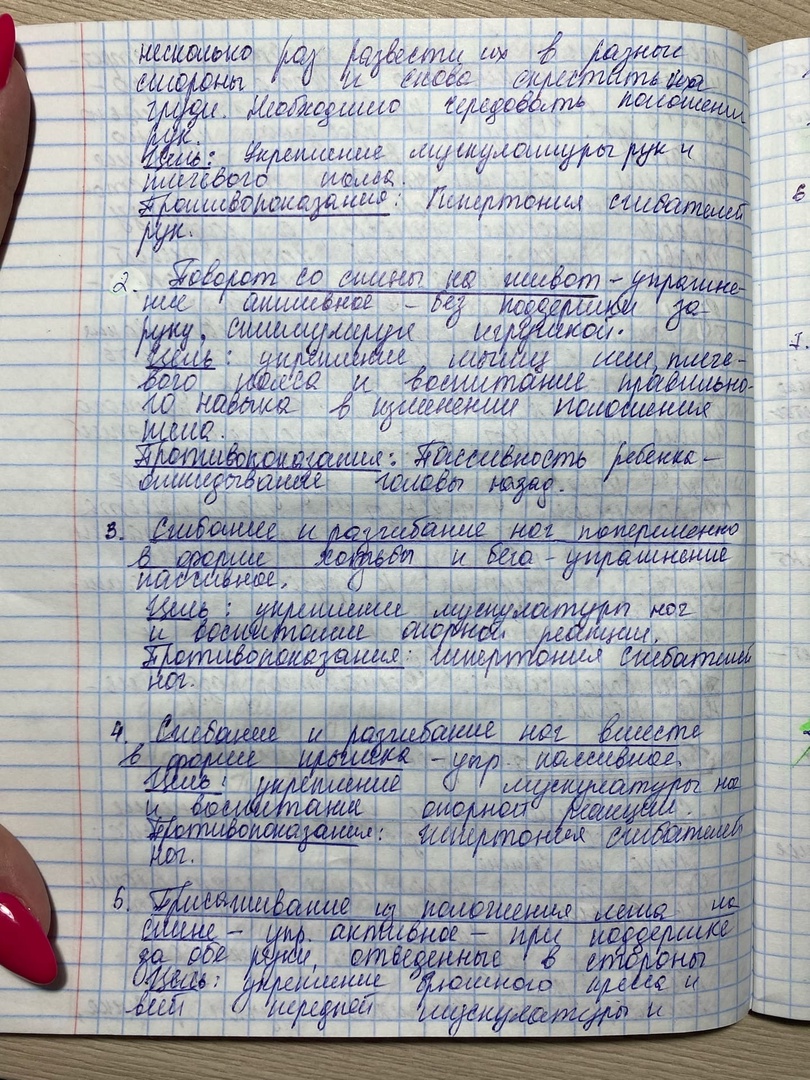 несколько раз развести их в разные
стороны и снова скрестить на
груди. Необходимо чередовать положения
рук.
Цель: Укрепление мускулатуры рук и
плечевого пояса.
Противопоказания: Гипертония сгибателей
рук.
2. Поворот со спины на живот – упражне-
ние активное – без поддержки за
руку, стимулируя игрушкой.
Цель: укрепление мышц шеи, плече-
вого пояса и воспитание правильно-
го навыка в изменении положения
тела.
Противопоказания: Пассивность ребенка –
откидывание головы назад.
3. Сгибание и разгибание ног попеременно
в форме ходьбы и бега – упражнение
пассивное.
Цель: укрепление мускулатуры ног
и воспитание опорной реакции.
Противопоказания: гипертония сгибателей
ног.
4. Сгибание и разгибание ног вместе
в форме прыжка – упр. пассивное.
Цель: укрепление мускулатуры ног
и воспитания опорной реакции.
Противопоказания: гипертония сгибателей
ног.
5. Присаживание из положения лежа на
спине – упр. активное – при поддержке
за обе руки, отведенные в стороны
Цель: укрепление брюшного пресса и
всей передней мускулатуры и